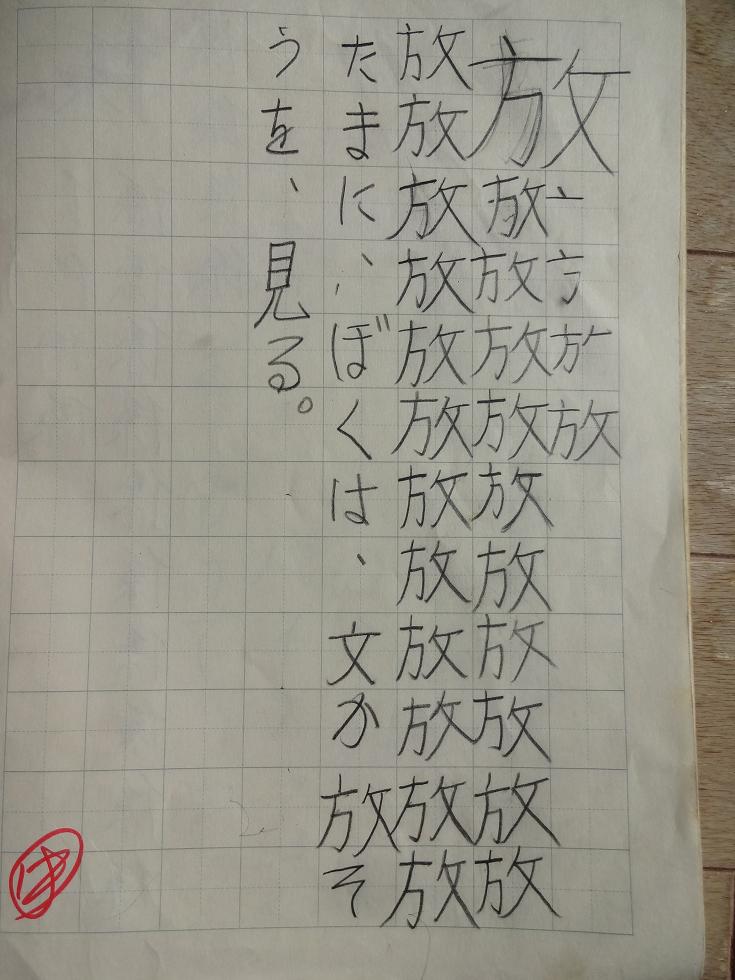 放
亠放
放放放放放放放放放放
放放放放放放放放放放放放
たまに、ぼくは、文か放そ
うを、見る。